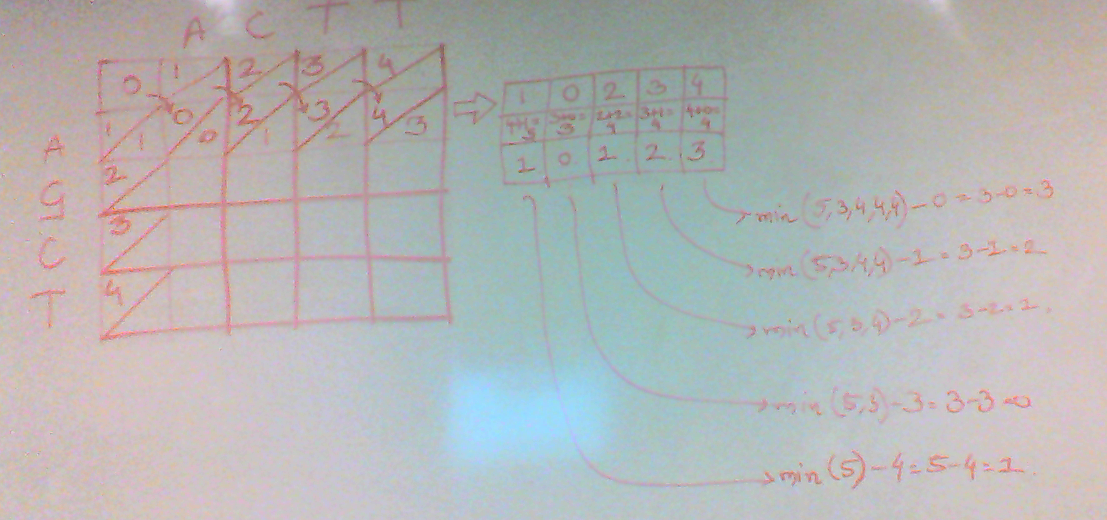 A C T T
0 1 2 3 4
1 1 0 0 2 1 3 2 4 3
A
2
G
3
C
4
T
1 0 2 3 4
4+1=5 3+0=3 2+2=4 3+1=4 4+0=4
1 0 1 2 3
min(5,3,4,4,4)-0=3-0=3
min(5,3,4,4)-1=3-1=2
min(5,3,4)-2=3-2=1.
min(5,3)-3=3-3=0
min(5)-4=5-4=1.